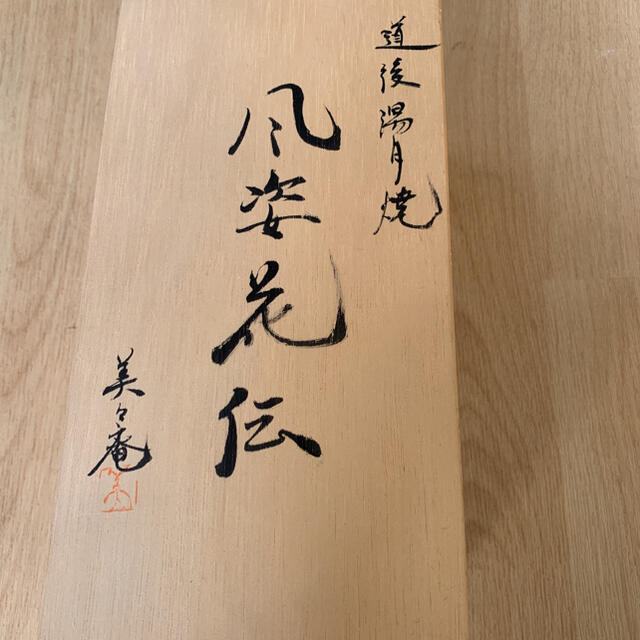 道後湯月焼
風姿花伝
美々庵